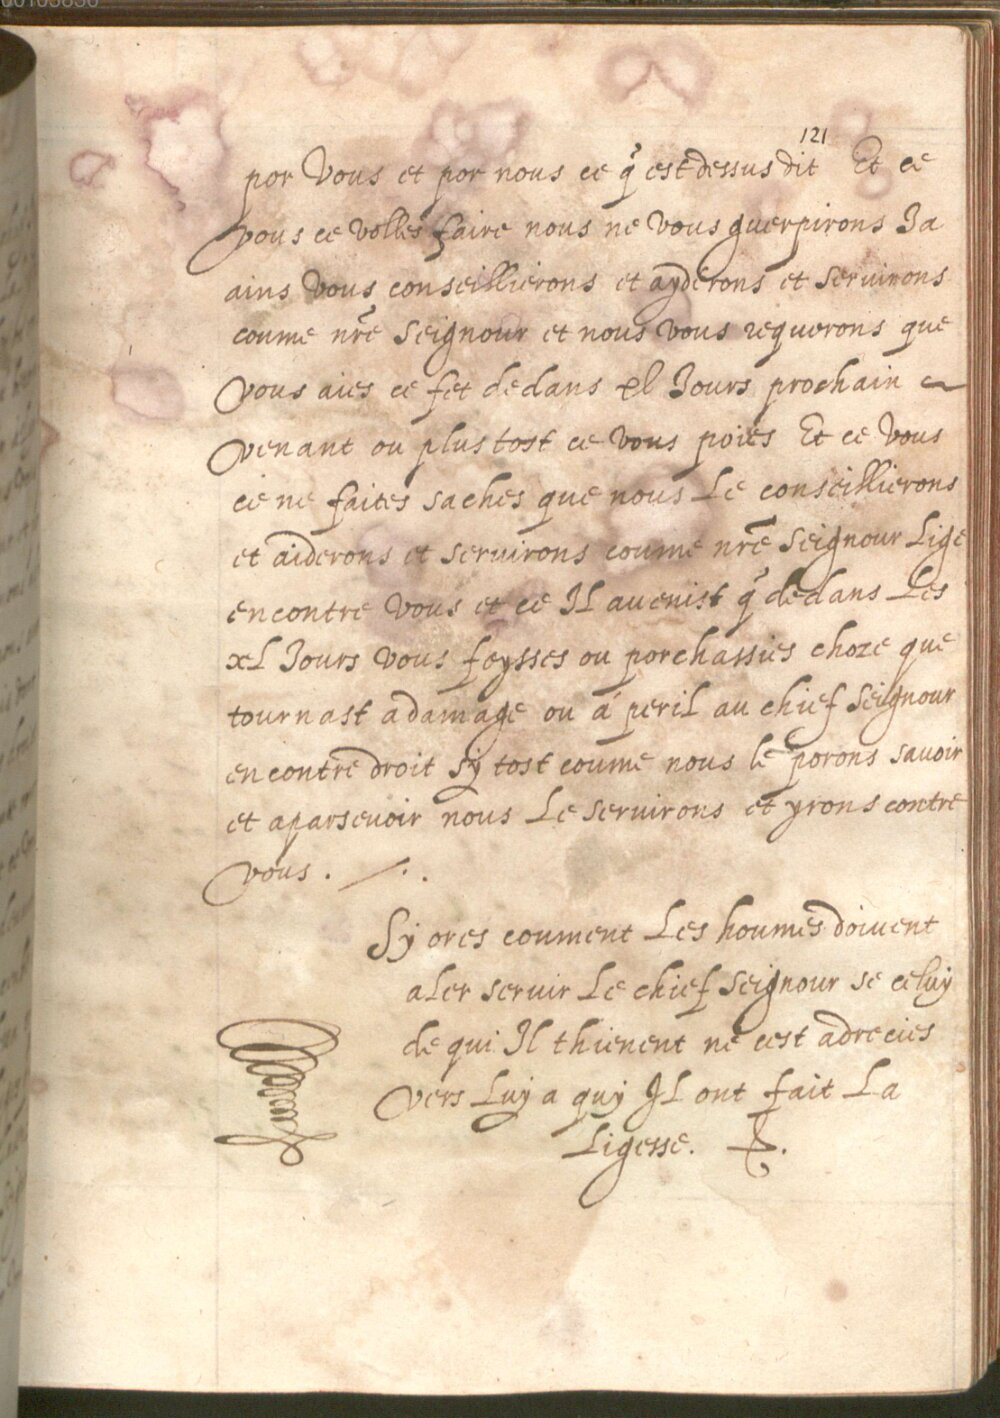 121
por vous et por nous ce q̃ est dessus dit Et ce
vous ce volles faire nous ne vous guerpirons Ja
ains vous conseillierons et ayderons et seruirons
coume nr̃e seignour et nous vous requerons que
vous aies ce fet dedans xl Jours prochain
venant ou plus tost ce vous poies Et ce vous
ce ne faites saches que nous Le conseillierons
et aiderons et seruirons coume nr̃e seignour Lige
encontre vous et ce Il auenist q̃ dedans Les
xL Jours vous feysses ou porchassies choze que
tournast adamage ou á peril au chief seignour
encontre droit sy tost coume nous le porons sauoir
et aparseuoir nous Le seruirons et yrons contre
vous.
Sy ores coument Les houmes doiuent
aler seruir Le chief seignour se celuy
de qui Il thienent ne cest adrecies
vers Luy a quy Il ont fait La
Ligesse.